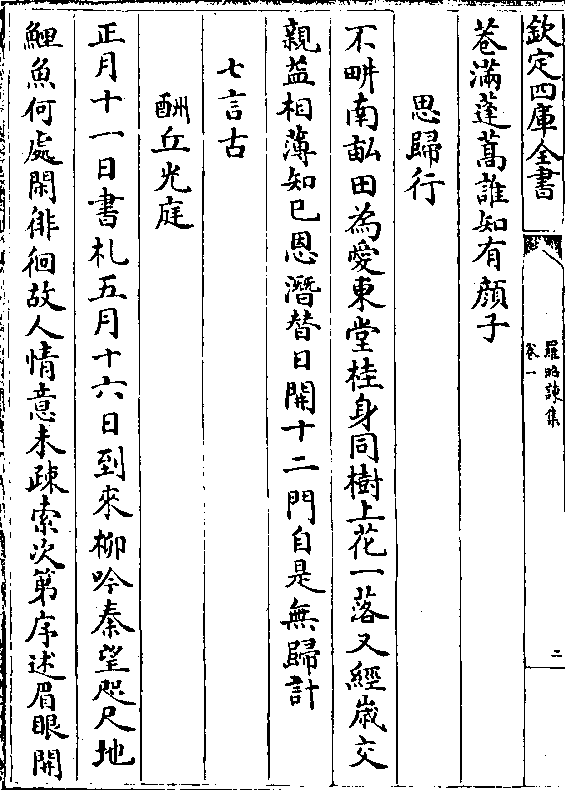 欽定四庫全書
羅昭諫集
卷一
二
巷滿蓬蒿誰知有顔子
思歸行
不畊南畝田為愛東堂桂身同樹上花一落又經歲交
親益相薄知己恩潛替日開十二門自是無歸計
七言古
酬丘光庭
正月十一日書札五月十六日到來柳吟秦望咫尺地
鯉魚何處閑徘徊故人情意未疎索次第序述眉眼開